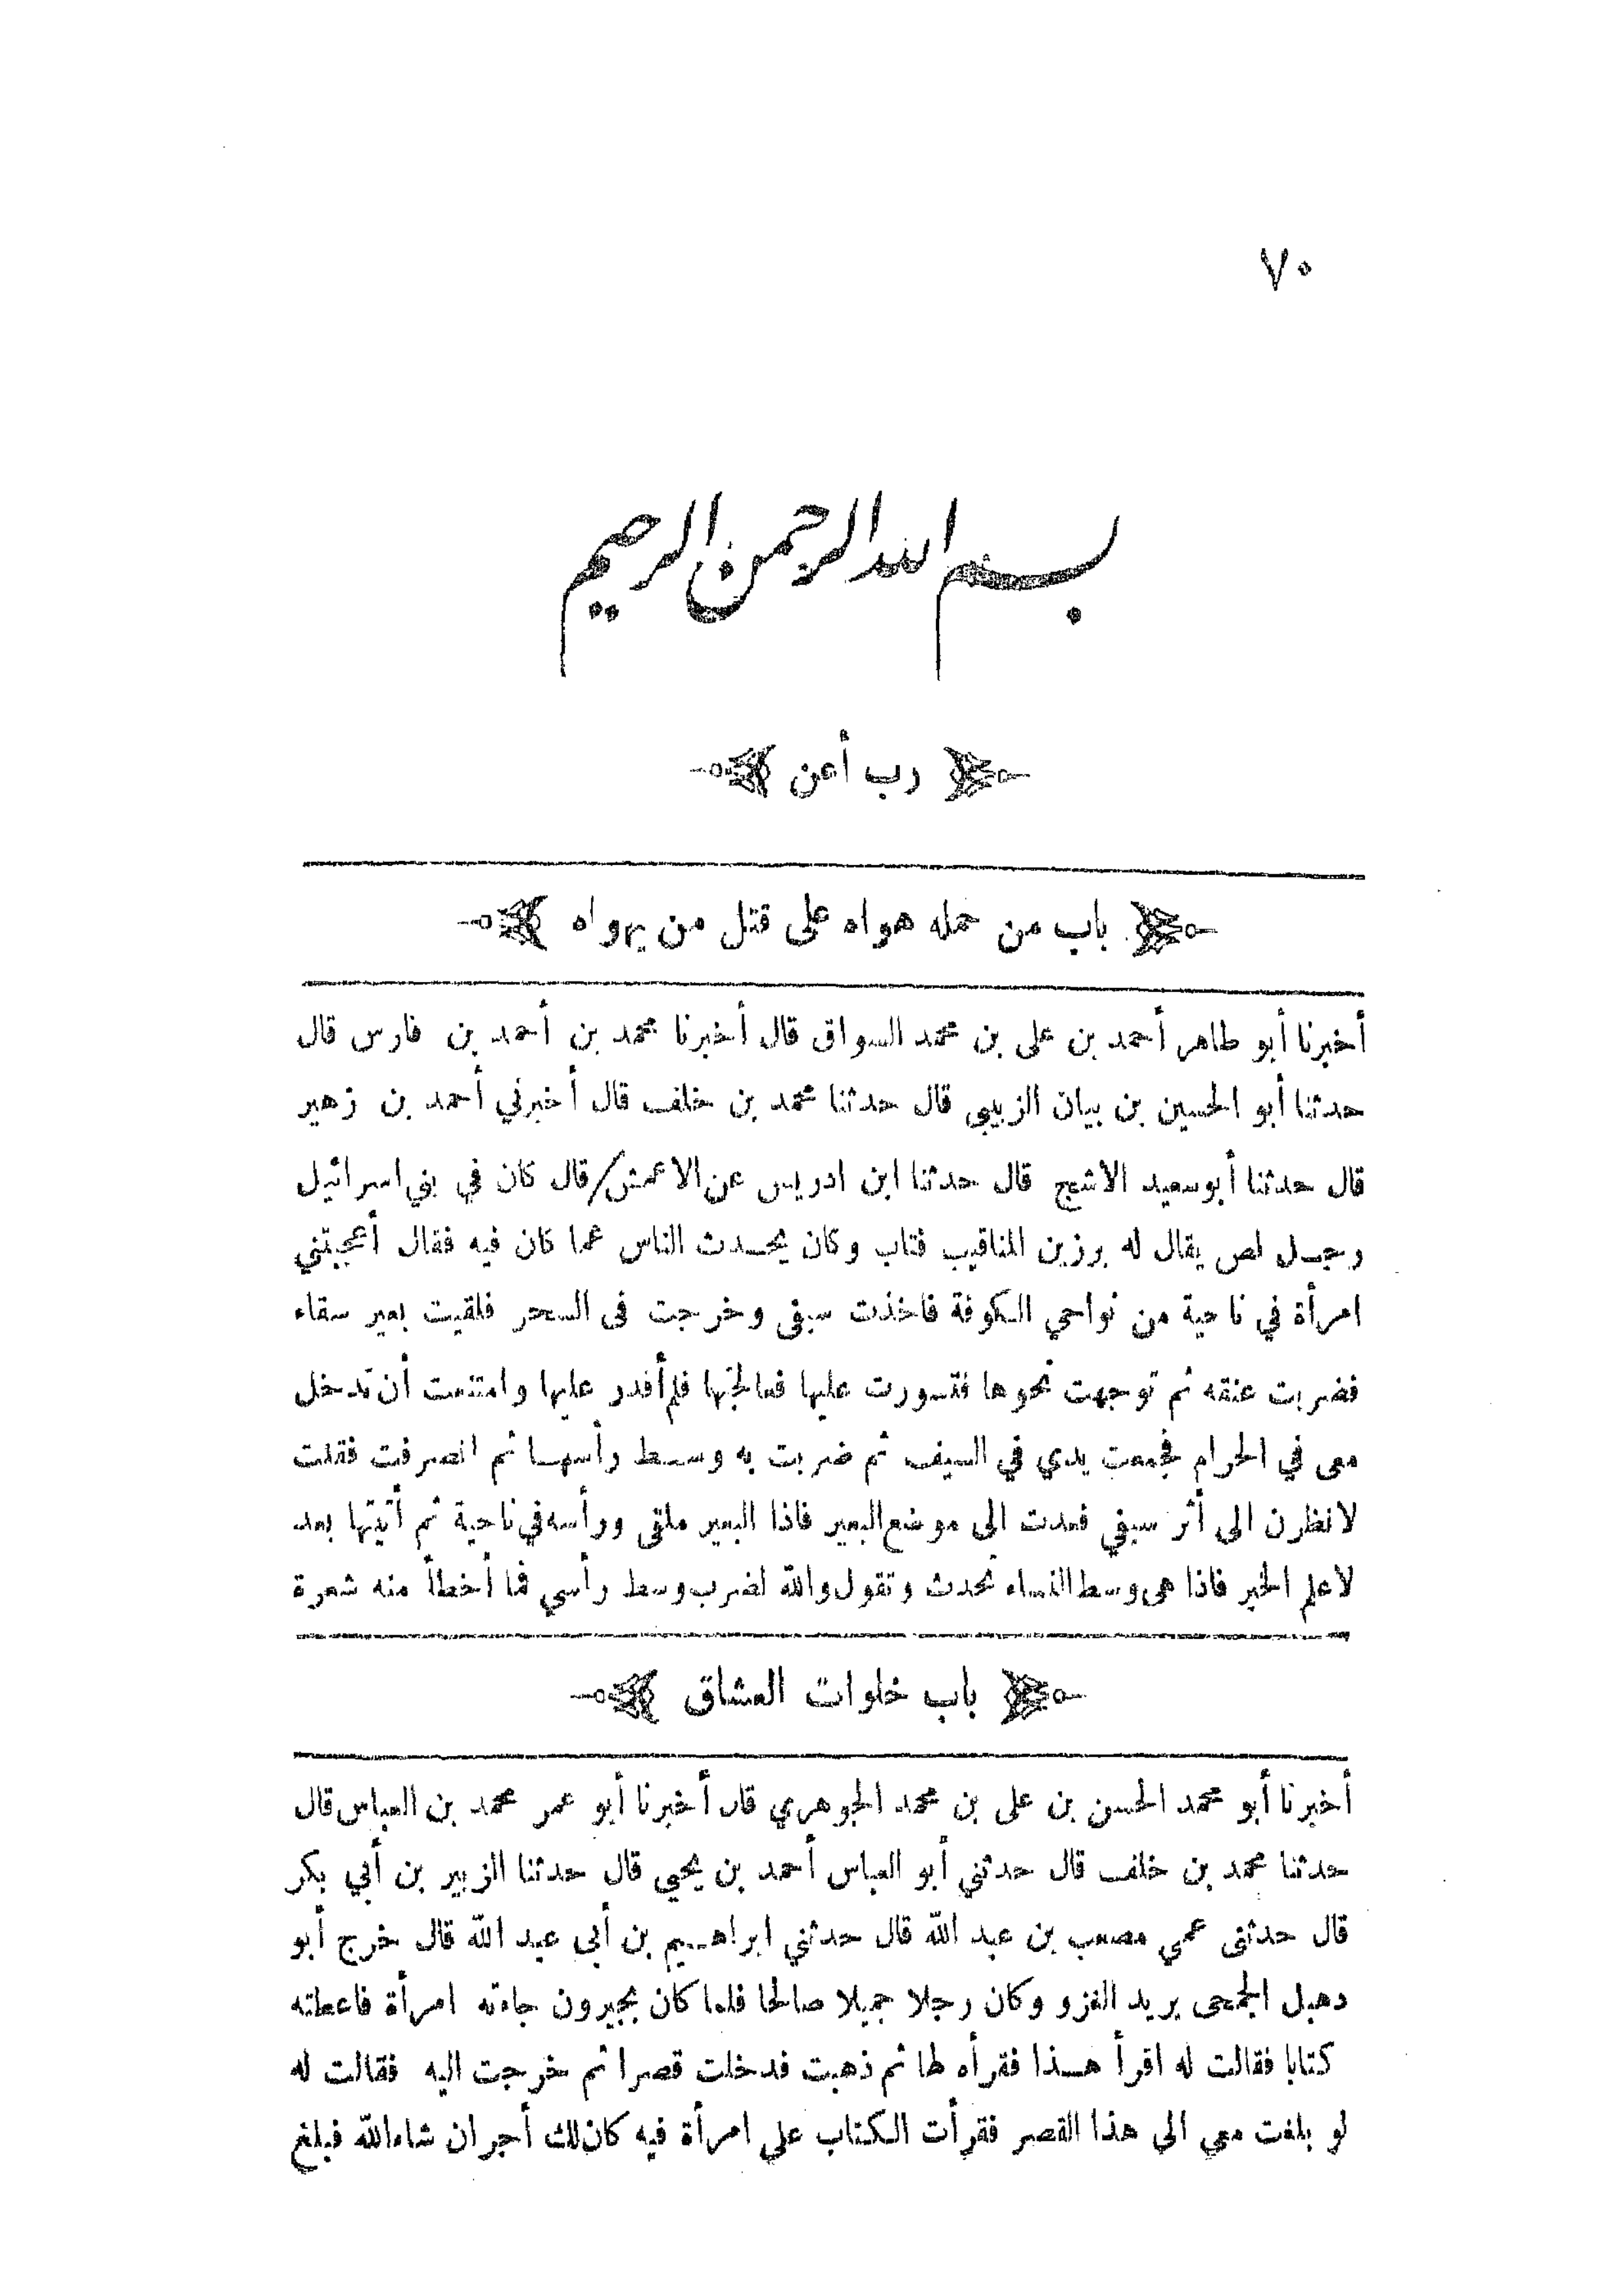 ٧٠
بسم الله الرحمن الرحيم
رب أعن
باب من حمله هواه على قتل من يهواه
أخبرنا أبو طاهر أحمد بن على بن محمد السواق قال أخبرنا محمد بن أحمد بن فارس قال
حدثنا أبو الحسين بن بيان الزبيبي قال حدثنا محمد بن خلف قال أخبرني أحمد بن زهير
قال حدثنا أبوسعيد الاشج قال حدثنا ابن ادريس عن الاعمش/قال كان في بني اسرائيل
رجل لص يقال له برزين المناقيب فتاب وكان يحدث الناس عما كان فيه فقال أعجبتني
امرأة في ناحية من نواحي الكوفة فاخذت سيفى وخرجت فى السحر فلقيت بعير سقاء
فضربت عنقه ثم توجهت نحوها فتسورت عليها فعالجتها فلم أقدر عليها وامتنعت أن تدخل
معى في الحرام فجمعت يدي في السيف ثم ضربت به وسط رأسها ثم انصرفت فقلت
لانظرن الى أثر سيفي فعدت الى موضع البعير فاذا البعير ملقى ورأسه في ناحية ثم أتيتها بعد
لاعلم الخبر فاذا هى وسط النساء تحدث وتقول والله لضرب وسط رأسي فما أخطأ منه شعرة
باب خلوات العشاق
أخبرنا أبو محمد الحسن بن على بن محمد الجوهري قال أخبرنا أبو عمر محمد بن العباس قال
حدثنا محمد بن خلف قال حدثني أبو العباس أحمد بن يحيي قال حدثنا الزبير بن أبي بكر
قال حدثنى عمي مصعب بن عبد الله قال حدثني ابراهيم بن أبى عبد الله قال خرج أبو
دهبل الجمحى يريد الغزو وكان رجلا جميلا صالحا فلما كان بجيرون جاءته امرأة فاعطته
كتابا فقالت له اقرأ هذا فقرأه لها ثم ذهبت فدخلت قصرا ثم خرجت اليه فقالت له
لو بلغت معي الى هذا القصر فقرأت الكتاب على امرأة فيه كان لك أجر ان شاء الله فبلغ